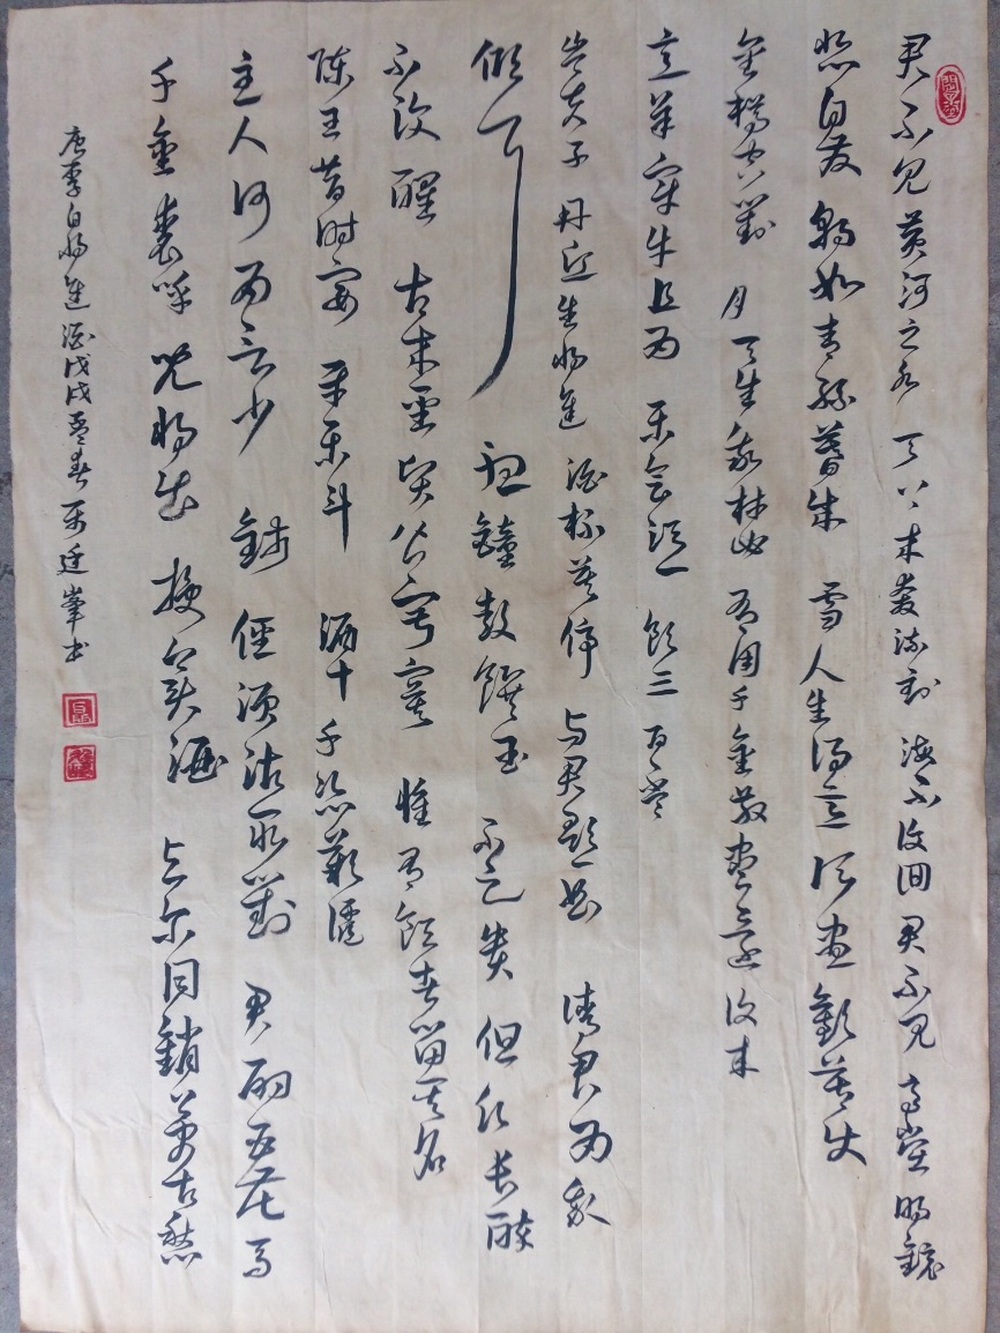 君不见黄河之水天上来奔流到海不复回君不见高堂明镜
悲白发朝如青丝暮成雪人生得意须尽欢莫使
金樽空对月天生我材必有用千金散尽还复来
烹羊宰牛且为乐会须一饮三百杯
岑夫子丹丘生将进酒杯莫停与君歌一曲请君为我
倾耳听钟鼓馔玉不足贵但愿长醉
不复醒古来圣贤皆寂寞惟有饮者留其名
陈王昔时宴平乐斗酒十千恣欢谑
主人何为言少钱径须沽取对君酌五花马
千金裘呼儿将出换美酒与尔同销万古愁
唐李白将进酒戊戌孟春